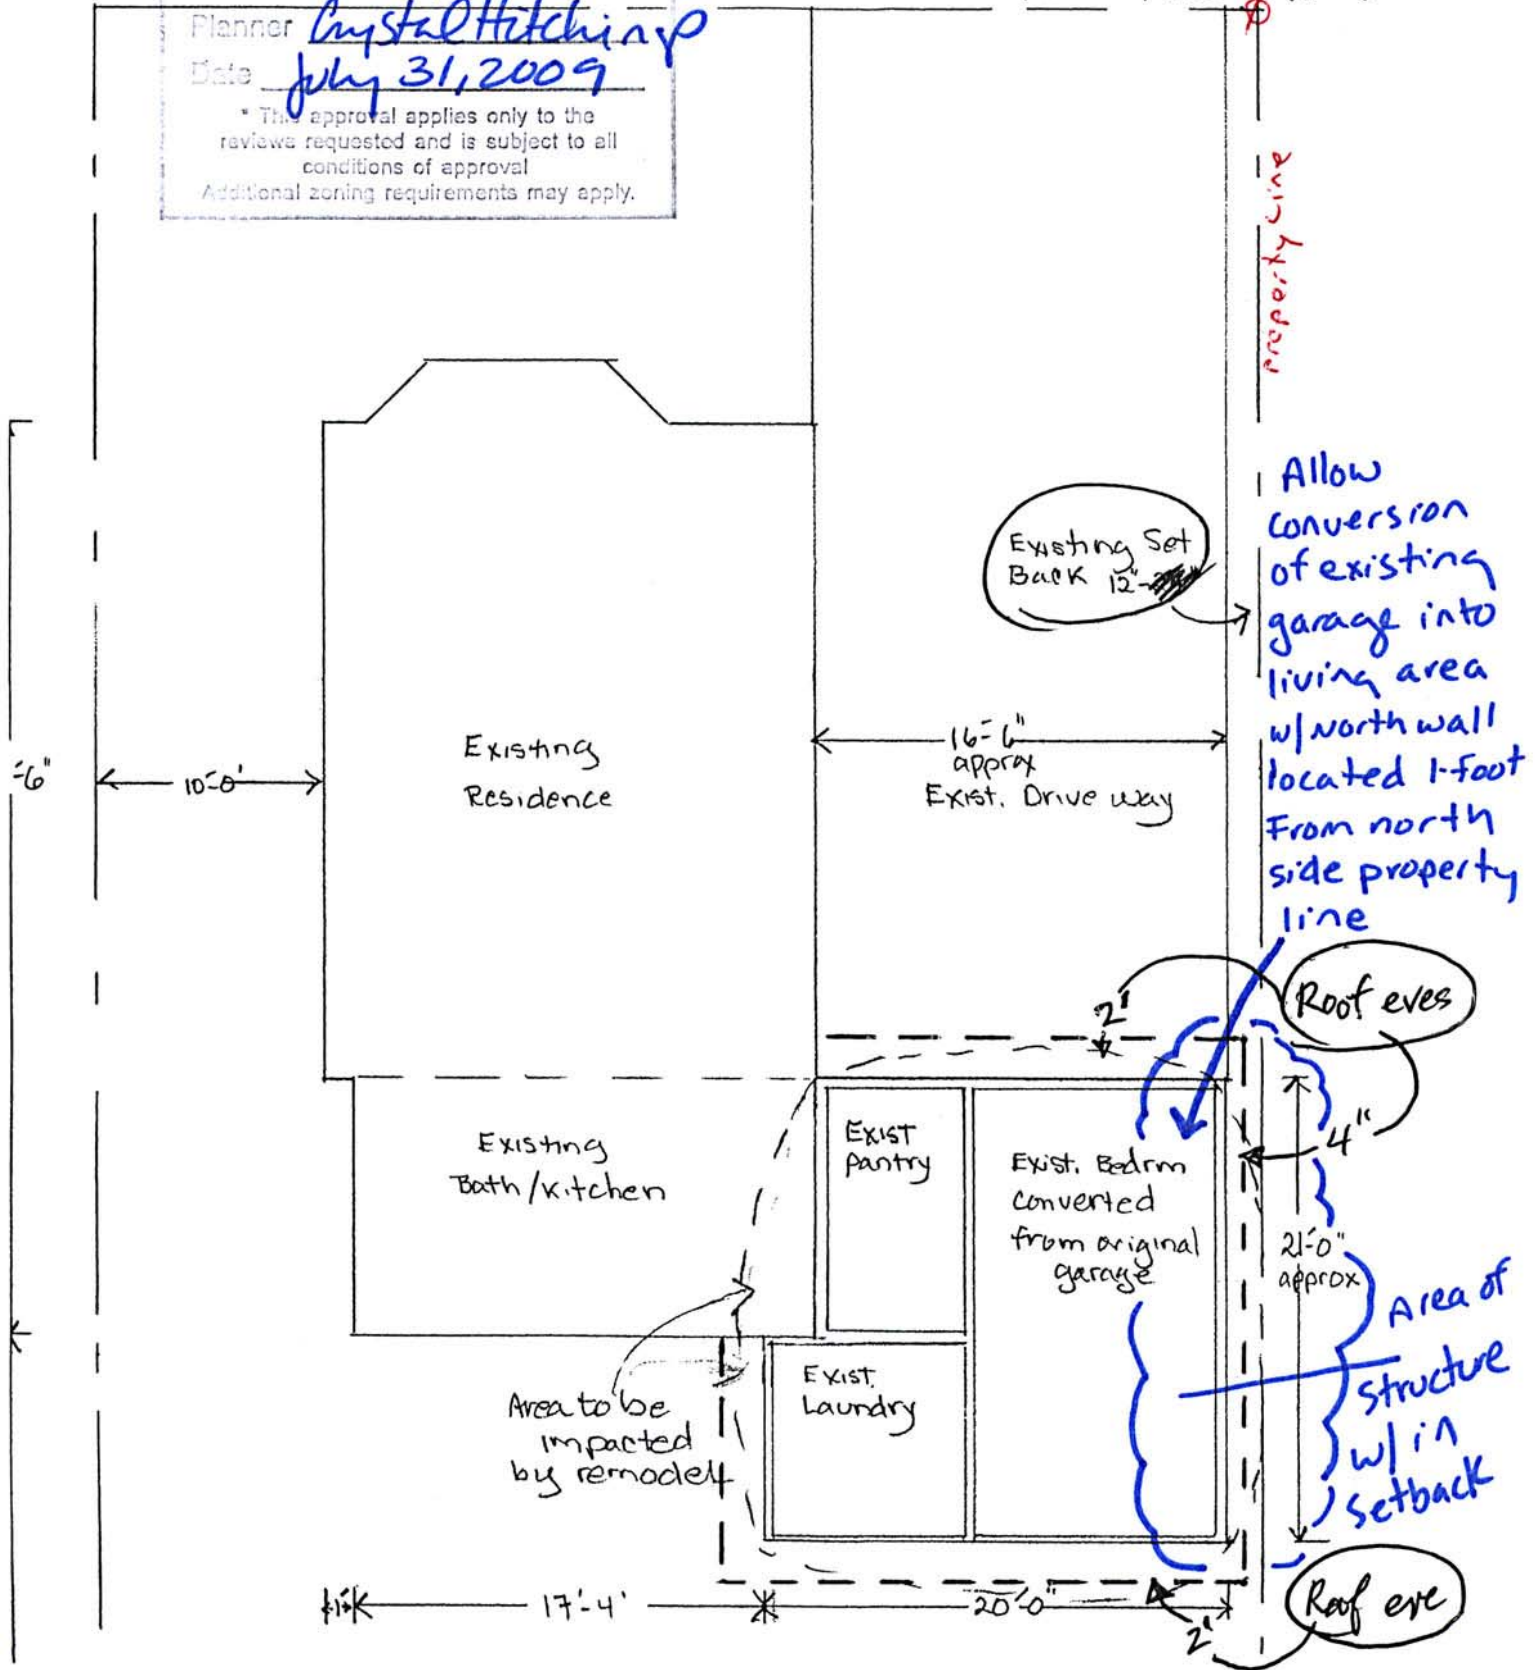 Planner Crystal Hitchings
Date July 31, 2009
* This approval applies only to the
reviews requested and is subject to all
conditions of approval
Additional zoning requirements may apply.
property line
Allow
conversion
of existing
garage into
living area
w/ North wall
located 1-foot
From north
side property
line
Existing Set
Back 12"
-6"
10'-0'
Existing
Residence
16'-6"
approx
Exist. Drive way
Roof eves
2'
4"
Existing
Bath/Kitchen
Exist
pantry
Exist. Bedrm
converted
from original
garage
21'-0"
approx
Area of
structure
w/in
setback
Exist.
Laundry
Area to be
impacted
by remodel
1'
17'-4'
20'-0"
2'
Roof eve